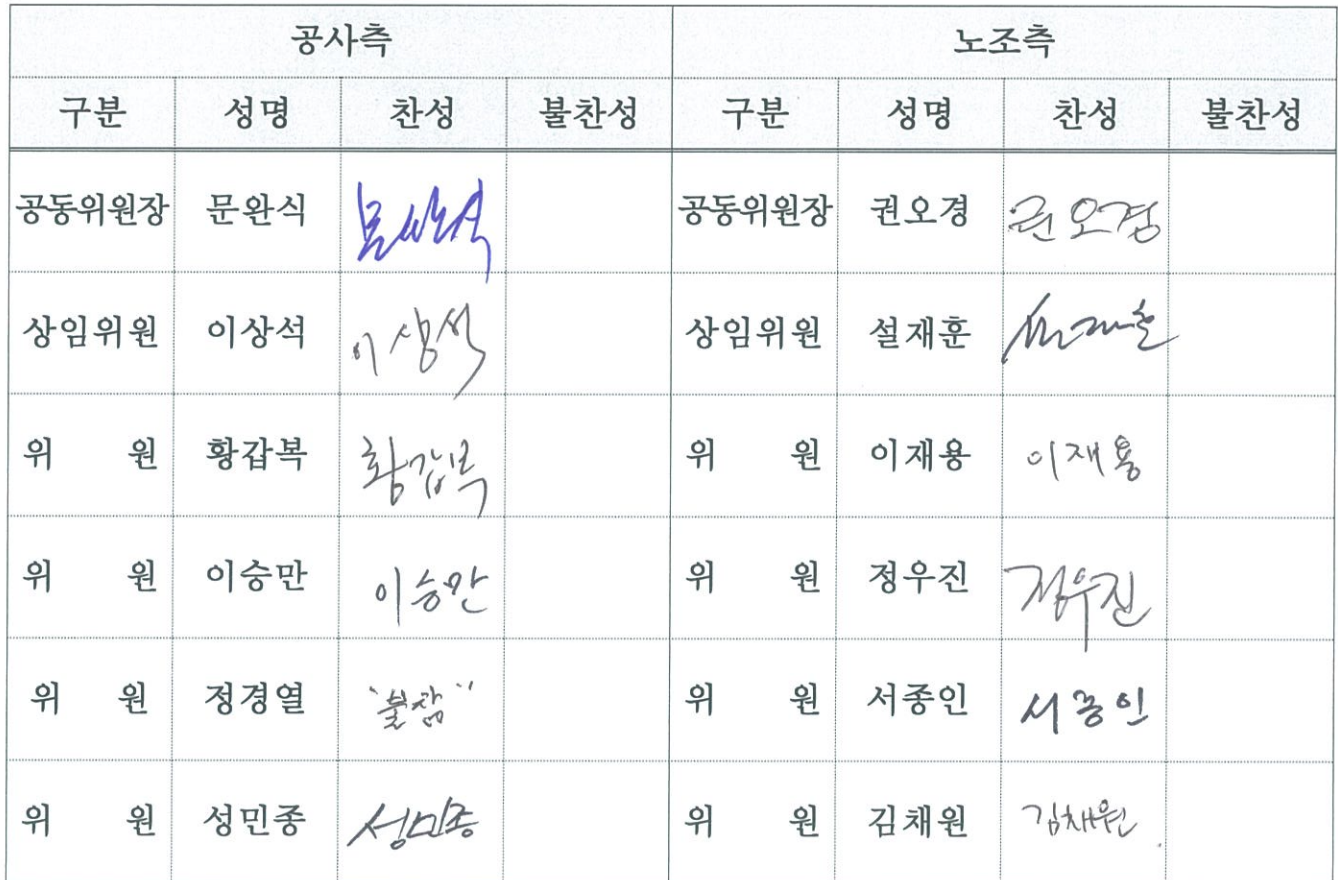 공사측 노조측
구분 성명 찬성 불찬성 구분 성명 찬성 불찬성
공동위원장 문완식 문완식 공동위원장 권오경 권오경
상임위원 이상석 이상석 상임위원 설재훈 설재훈
위 원 황갑복 황갑복 위 원 이재용 이재용
위 원 이승만 이승만 위 원 정우진 정우진
위 원 정경열 "불참" 위 원 서종인 서종인
위 원 성민종 성민종 위 원 김채원 김채원